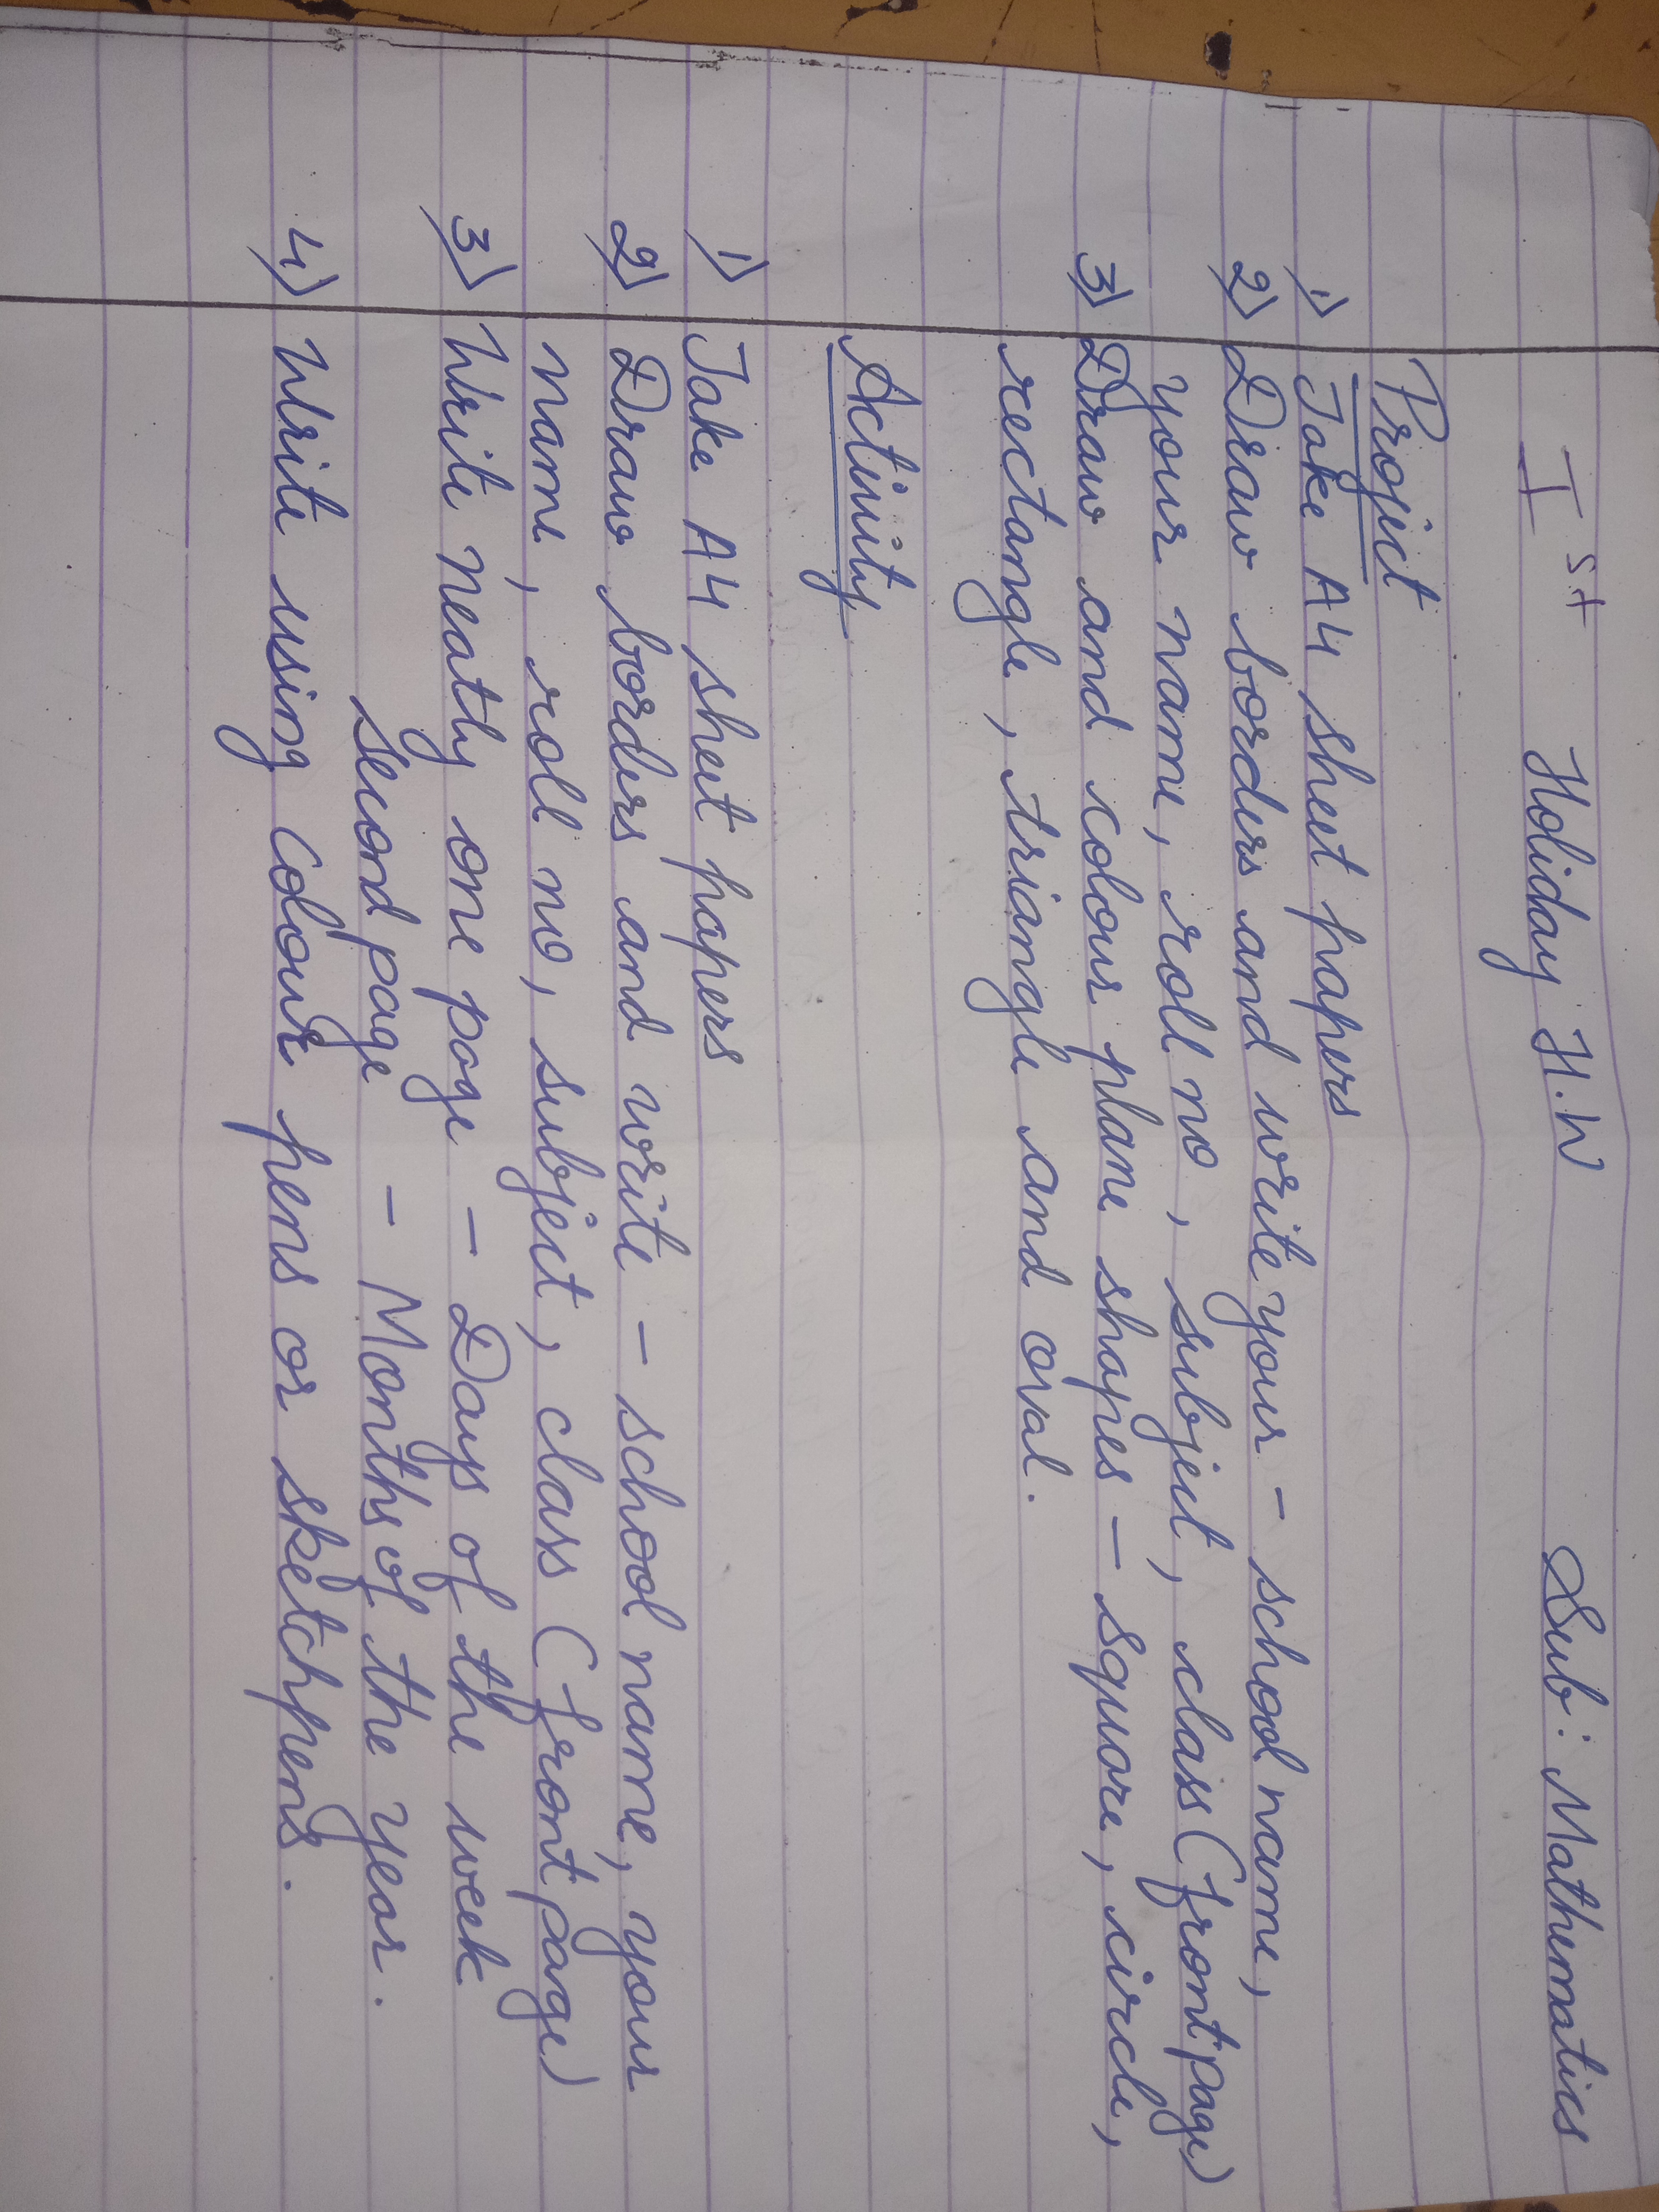 Ist Holiday H.W Sub: Mathematics
Project
1) Take A4 sheet papers
2) Draw borders and write your - school name,
your name, roll no, subject, class (front page)
3) Draw and colour plane shapes - square, circle,
rectangle, triangle and oval.
Activity
1) Take A4 sheet papers
2) Draw borders and write - school name, your
name, roll no, subject, class (front page)
3) Write neatly one page - Days of the week
second page - Months of the year.
4) Write using colour pens or sketchpens.